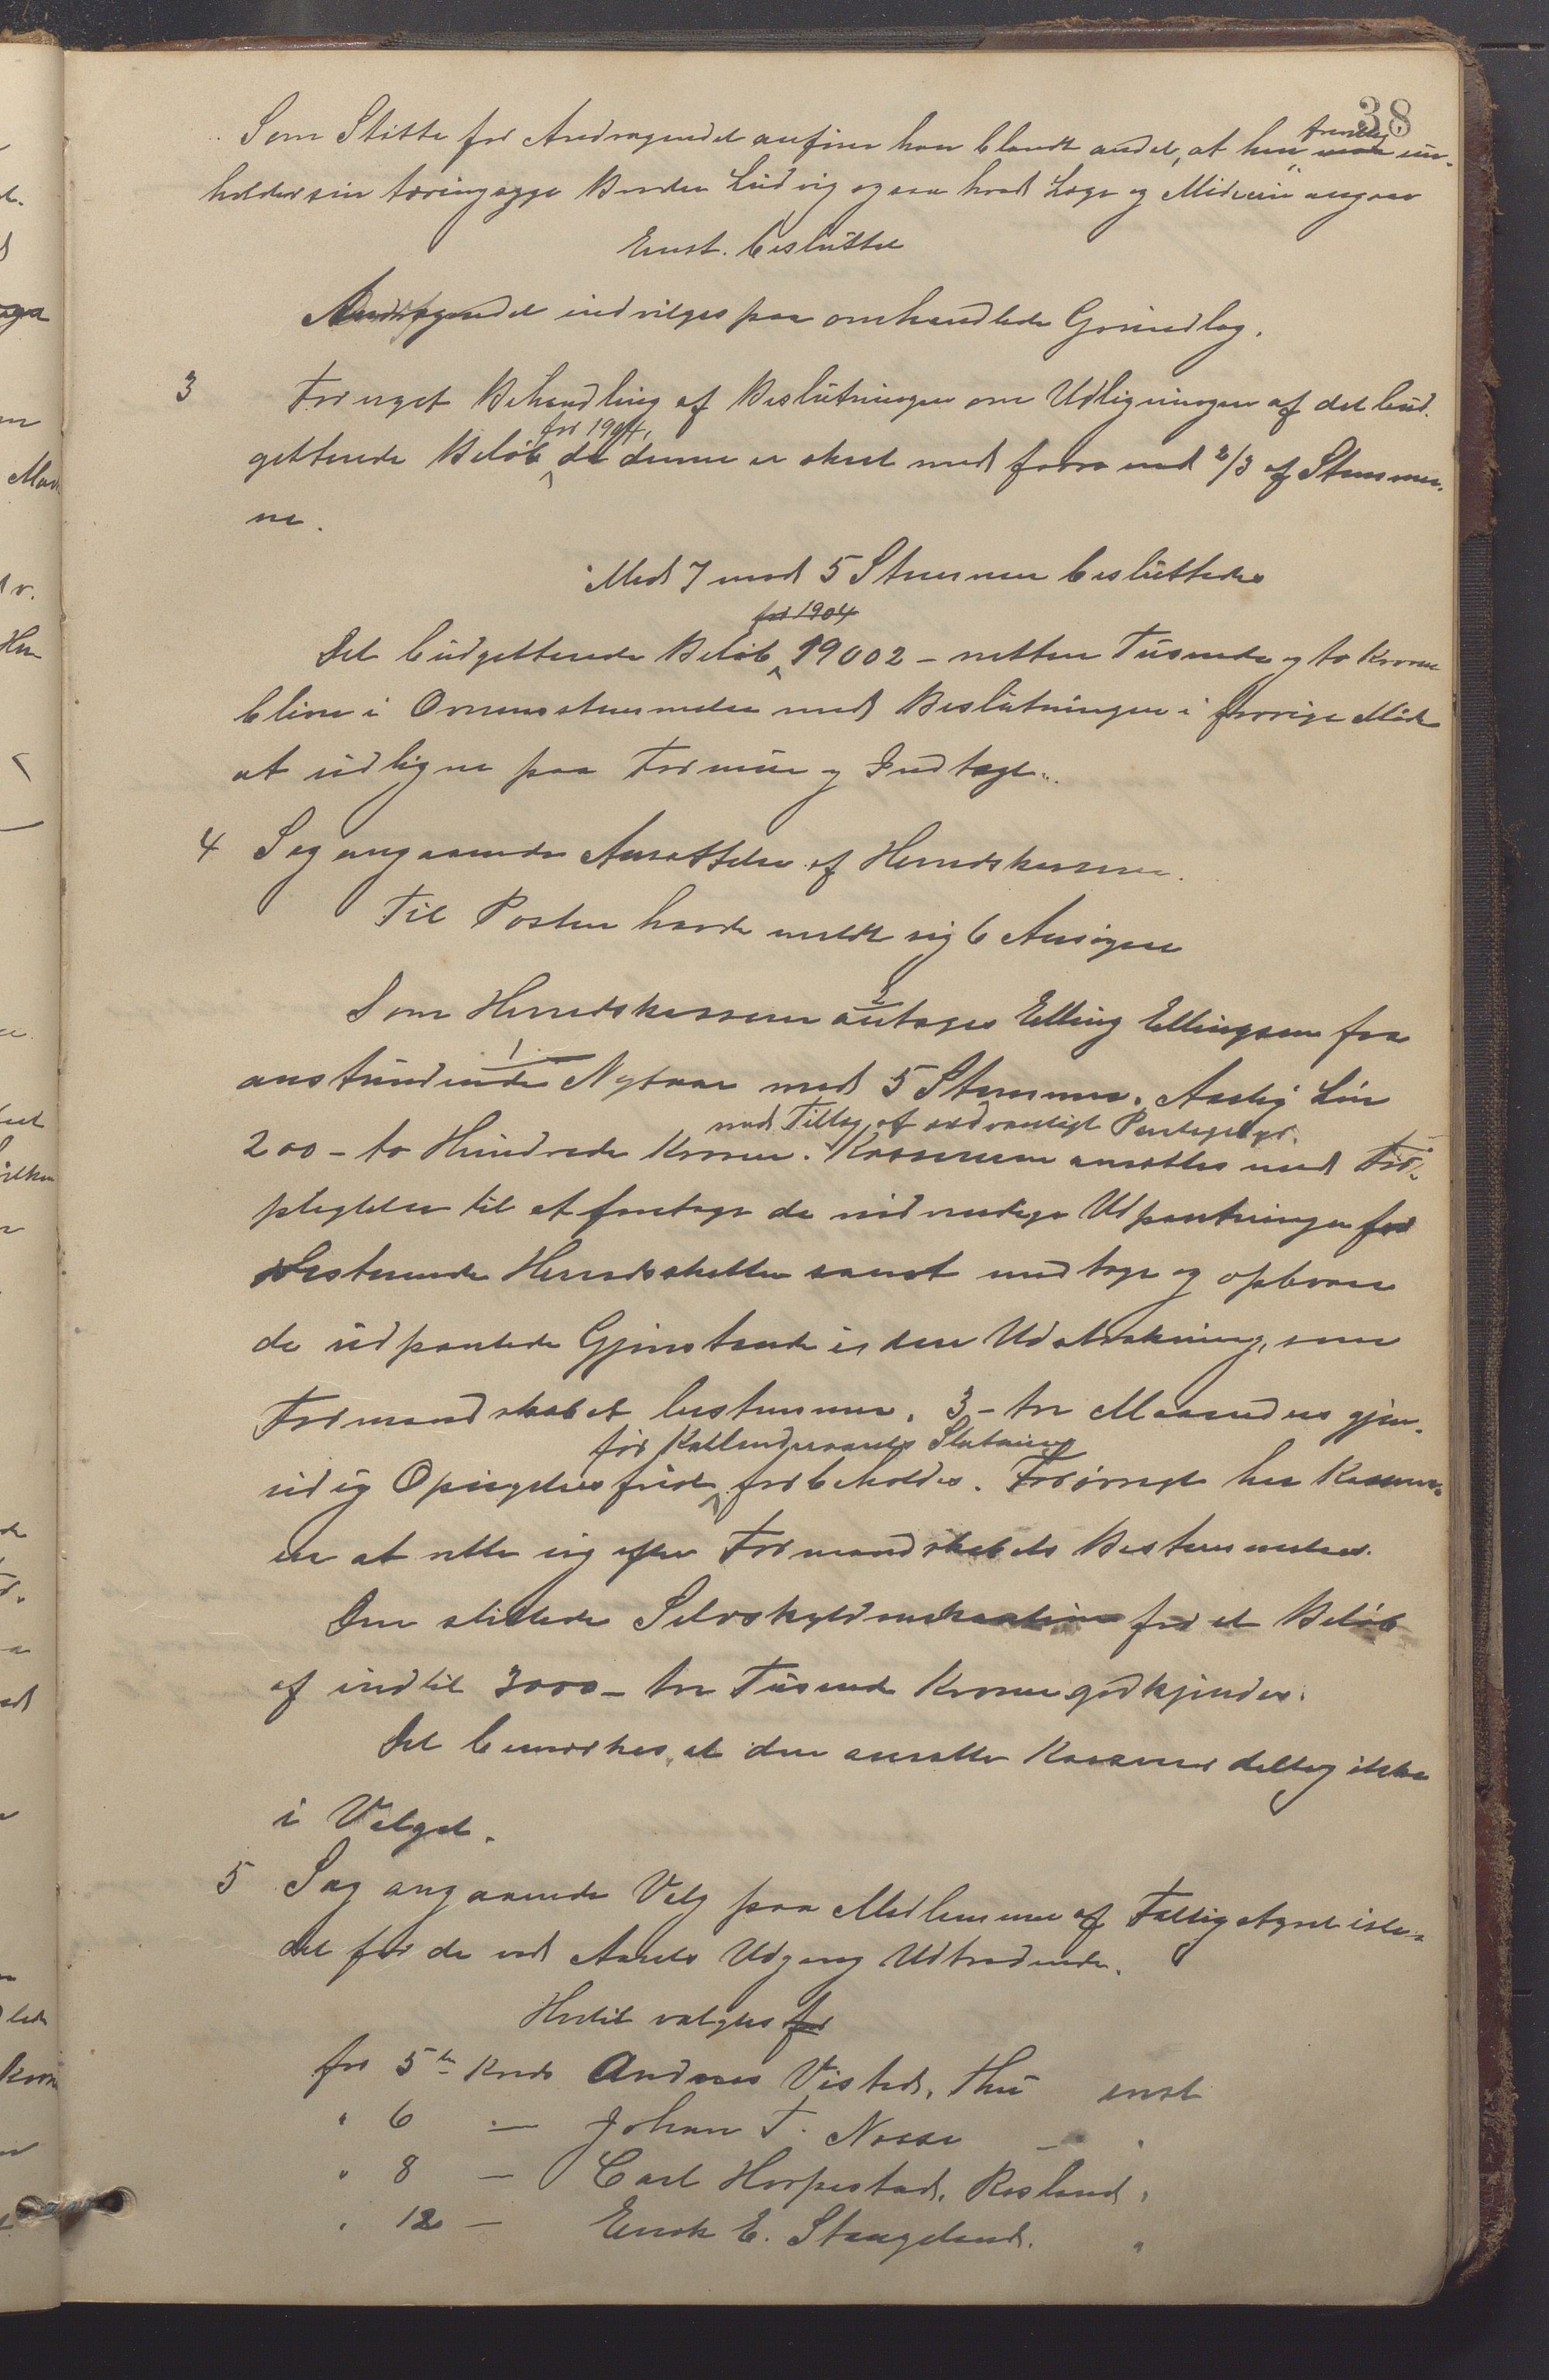 38
Som Støtte for Andragendet anfører han blandt andet, at han fremdeles un-
holder sin tæringssyge Broder Ludvig ogsaa hvad Læge og Medicin angaar
Enst. besluttet
Andragendet indvilges paa omhandlede Grundlag.
3 Fornyet Behandling af Beslutningen om Udligningen af det bud-
getterede Beløb for 1904, da denne er skeet med færre end 2/3 af Stemmer-
ne.
Med 7 mod 5 Stemmer besluttedes
for 1904
Det budgetterede Beløb 19002 – nitten Tusende og to Kroner
bliver i Overensstemmelse med Beslutningen i forrige Møde
at udligne paa Formue og Indtægt.
4 Sag angaaende Ansættelse af Herredskasserer.
Til Posten havde meldt sig 6 Ansøgere
Som Herredskasserer antages Elling Ellingsen fra
anstundende Nytaar med 5 Stemmer. Aarlig Løn
med Tillæg af sædvanligt Pantegebyr.
200 – to Hundrede Kroner. Kassereren ansættes med For-
pligtelse til at foretage de nødvendige Udpantninger for
resterende Herredsskatter samt modtage og opbevare
de udpantede Gjenstande i den Udstrækning, som
Formandskabet bestemmer. 3 – tre Maaneders gjen-
før Kallenderaarets Slutning
sidig Opsigelsesfrist forbeholdes. Forøvrigt har Kasser-
en at rette sig efter Formandskabets Bestemmelser.
Den stillede Selvskyldnerkaution for et Beløb
af indtil 3000 – tre Tusende Kroner godkjendes.
Det bemærkes, at den ansatte Kasserer deltog ikke
i Valget.
5 Sag angaaende Valg paa Medlemmer af Fattigstyret iste-
det for de ved Aarets Udgang Udtrædende.
Hertil valgtes for
for 5te Kreds Andreas Visted, Thu enst
" 6 — Johan T. Næsse — "
" 8 — Carl Horpestad, Rosland "
" 12 — Enok E. Stangeland. "